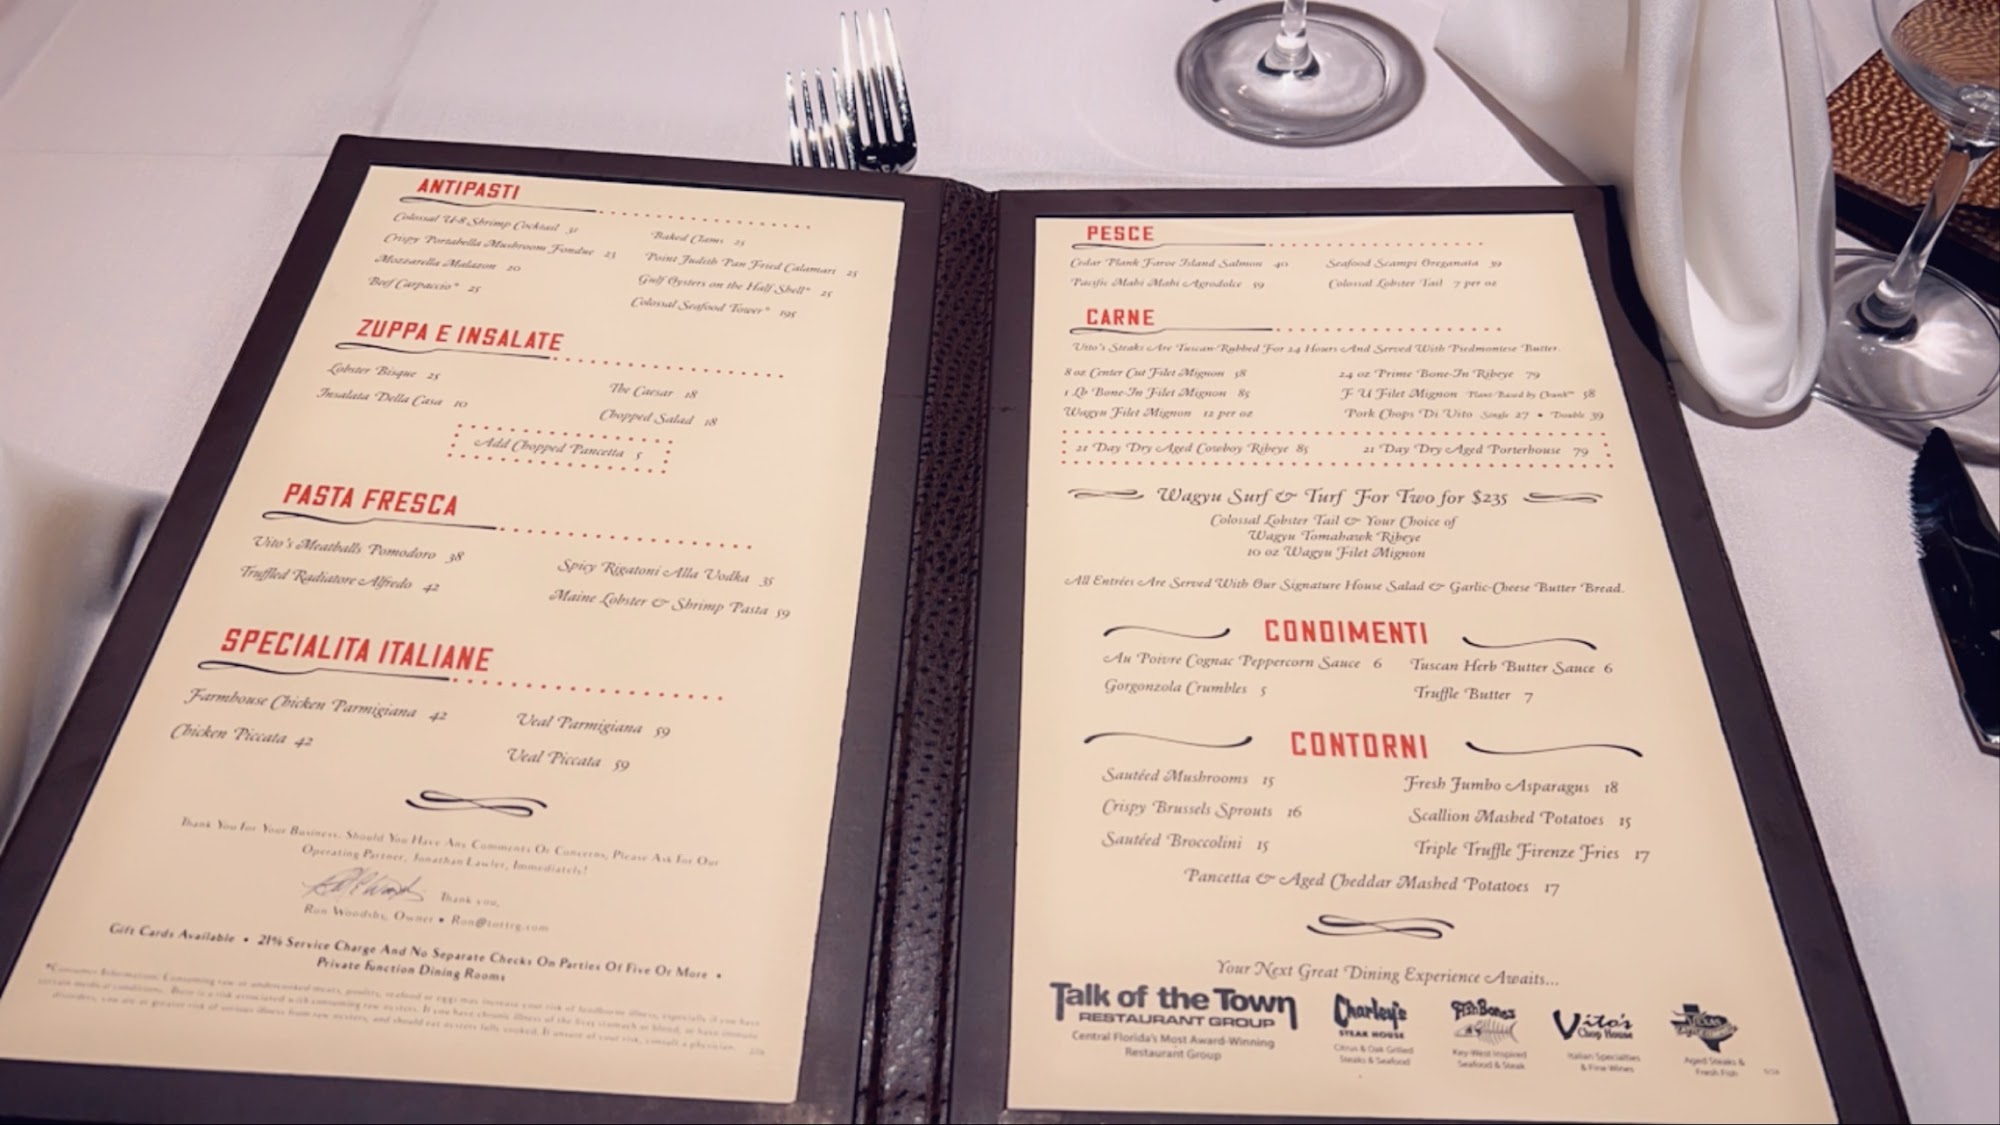 ANTIPASTI
Colossal U-8 Shrimp Cocktail 31
Crispy Portabella Mushroom Fondue 23
Mozzarella Malazon 20
Beef Carpaccio* 25
Baked Clams 25
Point Judith Pan Fried Calamari 25
Gulf Oysters on the Half Shell* 25
Colossal Seafood Tower* 195
ZUPPA E INSALATE
Lobster Bisque 25
Insalata Della Casa 10
The Caesar 18
Chopped Salad 18
Add Chopped Pancetta 5
PASTA FRESCA
Vito's Meatballs Pomodoro 38
Truffled Radiatore Alfredo 42
Spicy Rigatoni Alla Vodka 35
Maine Lobster & Shrimp Pasta 59
SPECIALITA ITALIANE
Farmhouse Chicken Parmigiana 42
Chicken Piccata 42
Veal Parmigiana 59
Veal Piccata 59
Thank You For Your Business. Should You Have Any Comments Or Concerns, Please Ask For Our
Operating Partner, Jonathan Lawler, Immediately!
Thank you,
Ron Woodsby, Owner • Ron@tottrg.com
Gift Cards Available • 21% Service Charge And No Separate Checks On Parties Of Five Or More •
Private Function Dining Rooms
*Consumer Information: Consuming raw or undercooked meats, poultry, seafood or eggs may increase your risk of foodborne illness, especially if you have
certain medical conditions. There is a risk associated with consuming raw oysters. If you have chronic illness of the liver, stomach or blood, or have immune
disorders, you are at greater risk of serious illness from raw oysters, and should eat oysters fully cooked. If unsure of your risk, consult a physician.
PESCE
Cedar Plank Faroe Island Salmon 40
Pacific Mahi Mahi Agrodolce 59
Seafood Scampi Oreganata 39
Colossal Lobster Tail 7 per oz
CARNE
Vito's Steaks Are Tuscan-Rubbed For 24 Hours And Served With Piedmontese Butter.
8 oz Center Cut Filet Mignon 58
1 Lb Bone-In Filet Mignon 85
Wagyu Filet Mignon 12 per oz
24 oz Prime Bone-In Ribeye 79
F U Filet Mignon Plant-Based by Chunk™ 58
Pork Chops Di Vito Single 27 • Double 39
21 Day Dry Aged Cowboy Ribeye 85
21 Day Dry Aged Porterhouse 79
Wagyu Surf & Turf For Two for $235
Colossal Lobster Tail & Your Choice of
Wagyu Tomahawk Ribeye
10 oz Wagyu Filet Mignon
All Entrées Are Served With Our Signature House Salad & Garlic-Cheese Butter Bread.
CONDIMENTI
Au Poivre Cognac Peppercorn Sauce 6
Gorgonzola Crumbles 5
Tuscan Herb Butter Sauce 6
Truffle Butter 7
CONTORNI
Sautéed Mushrooms 15
Crispy Brussels Sprouts 16
Sautéed Broccolini 15
Fresh Jumbo Asparagus 18
Scallion Mashed Potatoes 15
Triple Truffle Firenze Fries 17
Pancetta & Aged Cheddar Mashed Potatoes 17
Your Next Great Dining Experience Awaits...
Talk of the Town
RESTAURANT GROUP
Central Florida's Most Award-Winning
Restaurant Group
Charley's
STEAK HOUSE
Citrus & Oak Grilled
Steaks & Seafood
FishBones
Key-West Inspired
Seafood & Steak
Vito's
Chop House
Italian Specialties
& Fine Wines
Aged Steaks &
Fresh Fish